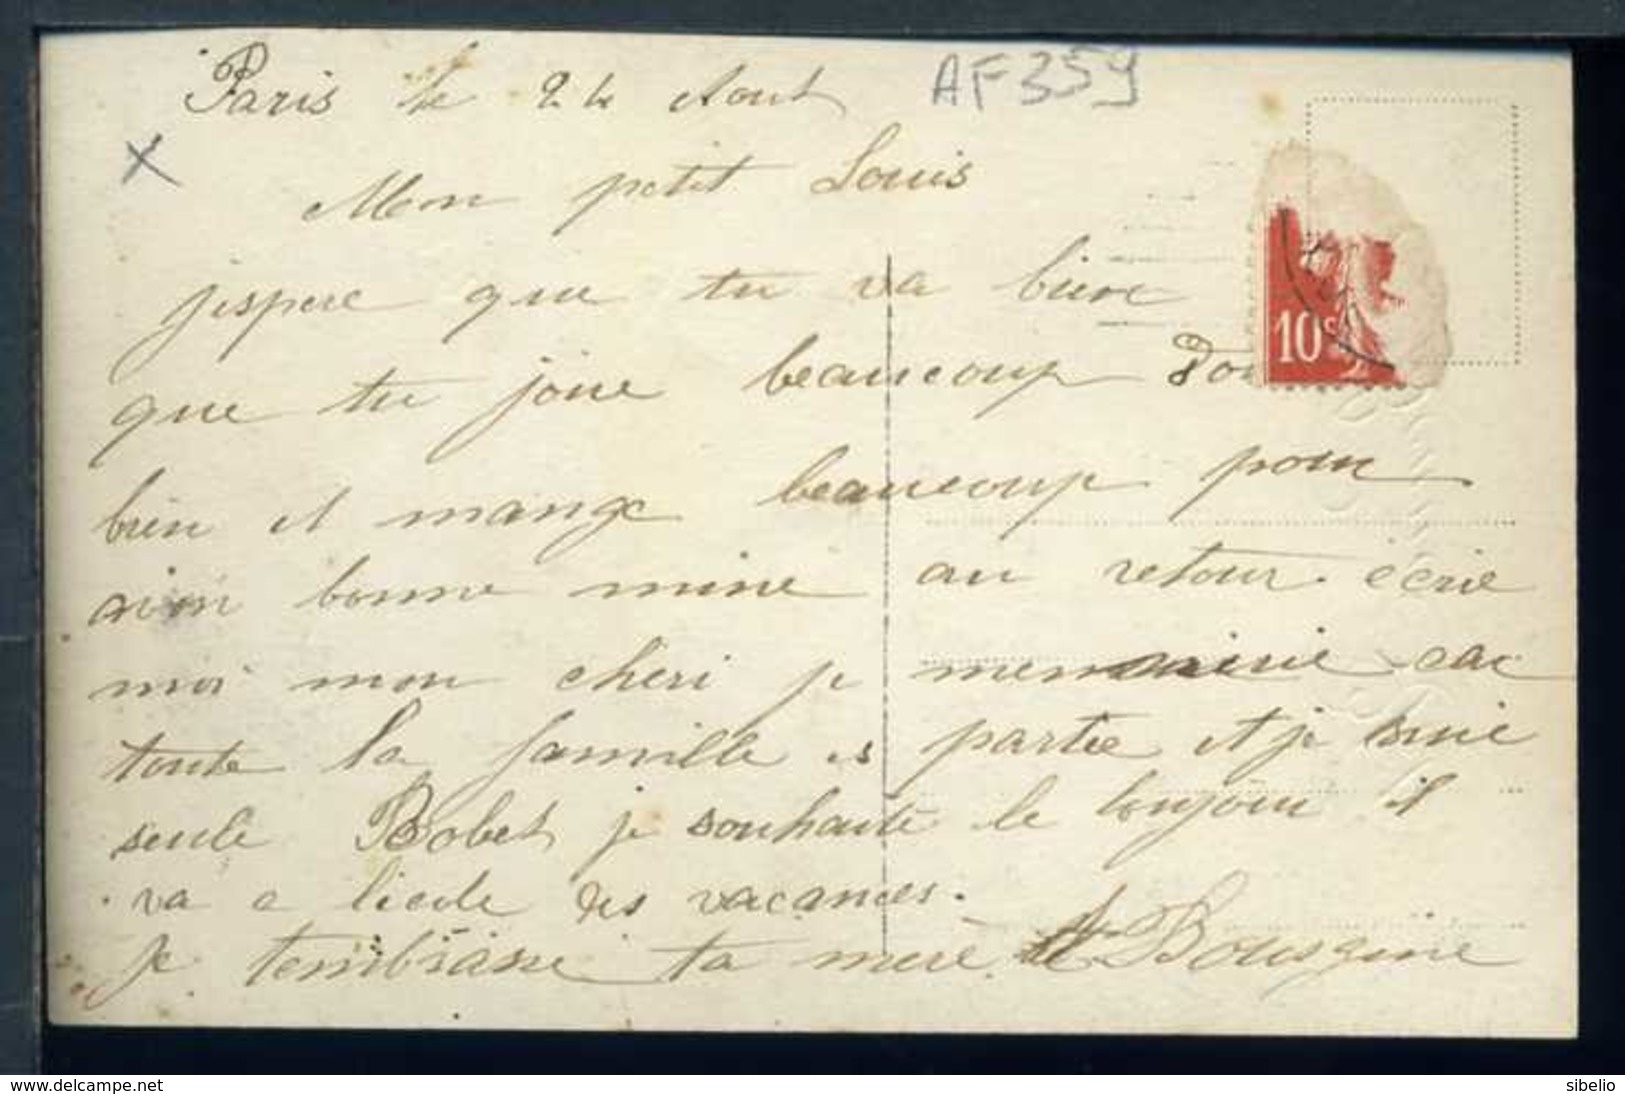 Paris le 24 Aout
AF359
Mon petit Louis
jespere que tu va bien
que tu joue beaucoup
10c
bien et mange beaucoup pour
bonne mine au retour. écrie
moi mon cheri je car
toute la famille es partée et je suie
seule Bobet je souhaite le toujour il
va a licole des vacances.
je tembrasse ta mere Bousgine
www.delcampe.net
sibelio